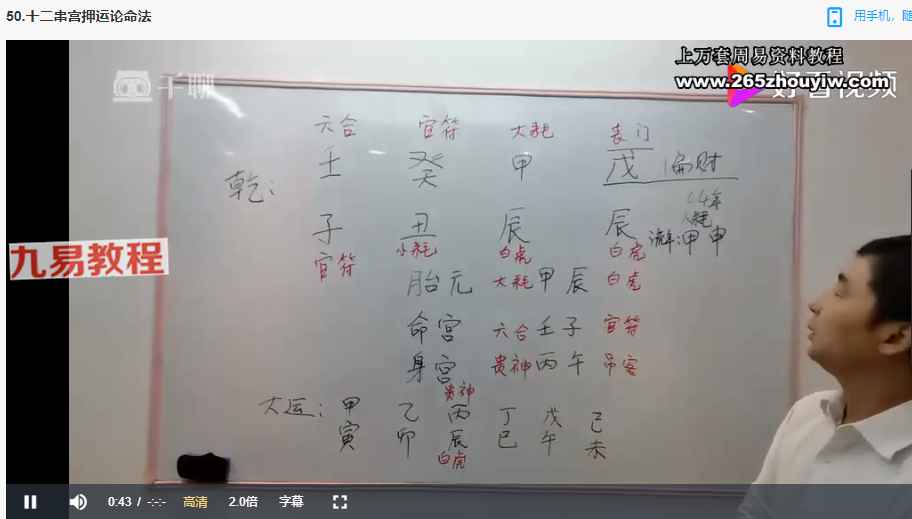 50.十二串宫押运论命法
用手机，随
上万套周易资料教程
www.265zhouyiw.com
千聊
好看视频
六合 官符 大耗 丧门
乾： 壬 癸 甲 戊 偏财
04年
大耗
子 丑 辰 辰 流年：甲申
官符 小耗 白虎 白虎
九易教程
胎元 大耗 甲辰 白虎
命宫 六合 壬子 官符
身宫 贵神 丙午 吊客
贵神
大运：甲 乙 丙 丁 戊 己
寅 卯 辰 巳 午 未
白虎
0:43 / -:-:- 高清 2.0倍 字幕